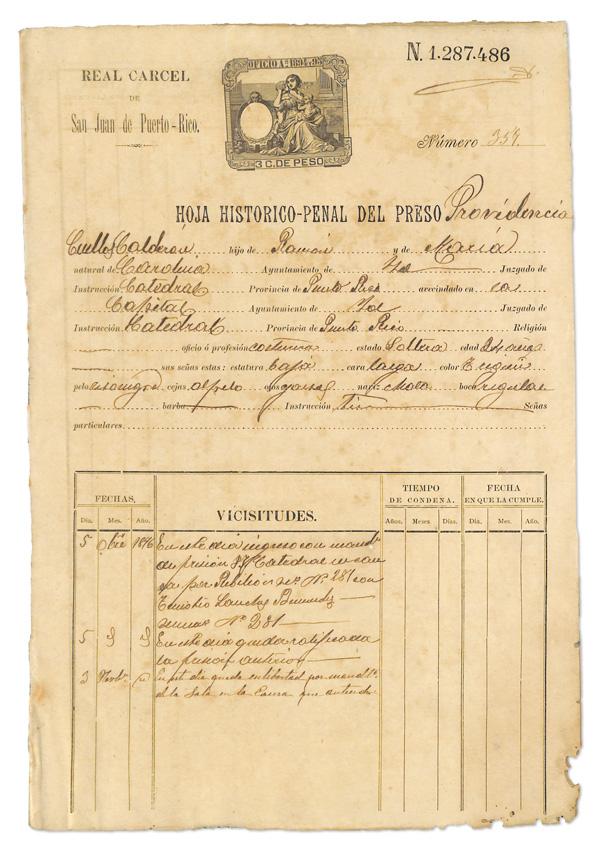 N. 1.287.486
OFICIO Aº 1894 y 95
REAL CARCEL
DE
San Juan de Puerto-Rico.
3 C. DE PESO
Número 354.
HOJA HISTORICO-PENAL DEL PRESO Providencia
Cuello Calderon hijo de Ramón y de Maria
natural de Carolina Ayuntamiento de Juzgado de
Instrucción Catedral Provincia de Puerto Rico avecindado en
Capital Ayuntamiento de Juzgado de
Instrucción Catedral Provincia de Puerto Rico Religión
oficio ó profesión costurera estado Soltera edad
sus señas estas: estatura baja cara larga color Trigueño
pelo cejas al pelo ojos nariz boca regular
barba Instrucción Señas
particulares.
FECHAS. VICISITUDES. TIEMPO DE CONDENA. FECHA EN QUE LA CUMPLE.
Día. Mes. Año. Años. Meses Días. Día. Mes. Año.
5 1896 En este dia ingresó con mandtº
de prision Catedral en cau
sa por Nº 281 con
Nº 281
5 En este dia queda ratificada
la prision anterior
3 En este dia queda en libertad por mandtº
de la Sala en la Causa que